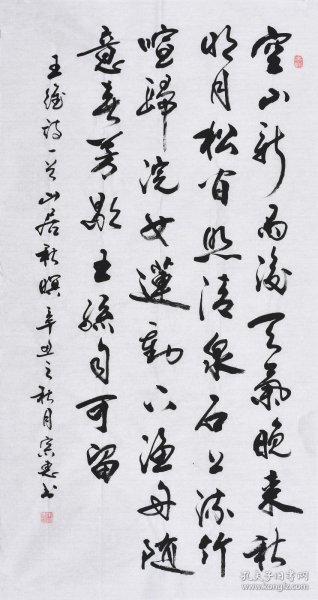 空山新雨後天氣晚来秋
明月松间照清泉石上流竹
喧歸浣女蓮動下漁舟随
意春芳歇王孫自可留
王維诗一首山居秋暝辛丑之秋月宗惠书
孔夫子旧书网
www.kongfz.com